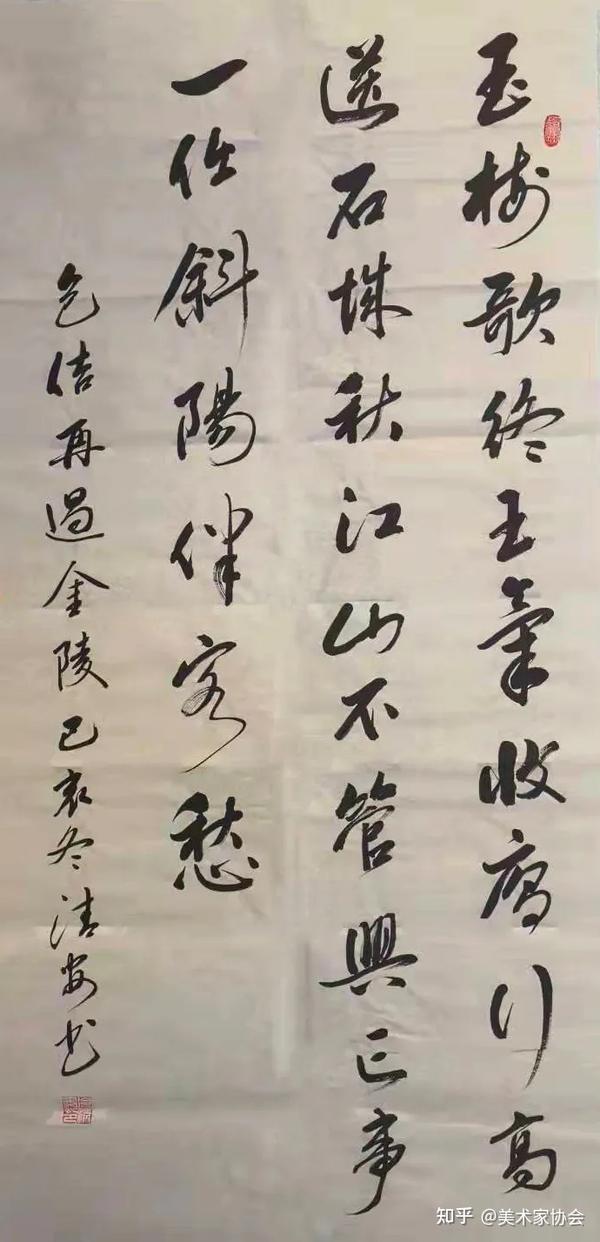 玉樹歌終王氣收雁行高
送石城秋江山不管興亡事
一任斜陽伴客愁
包佶再過金陵己亥冬清安书
知乎 @美术家协会